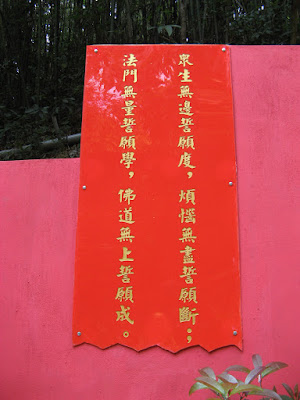 衆生無邊誓願度，煩惱無盡誓願斷；
法門無量誓願學，佛道無上誓願成。